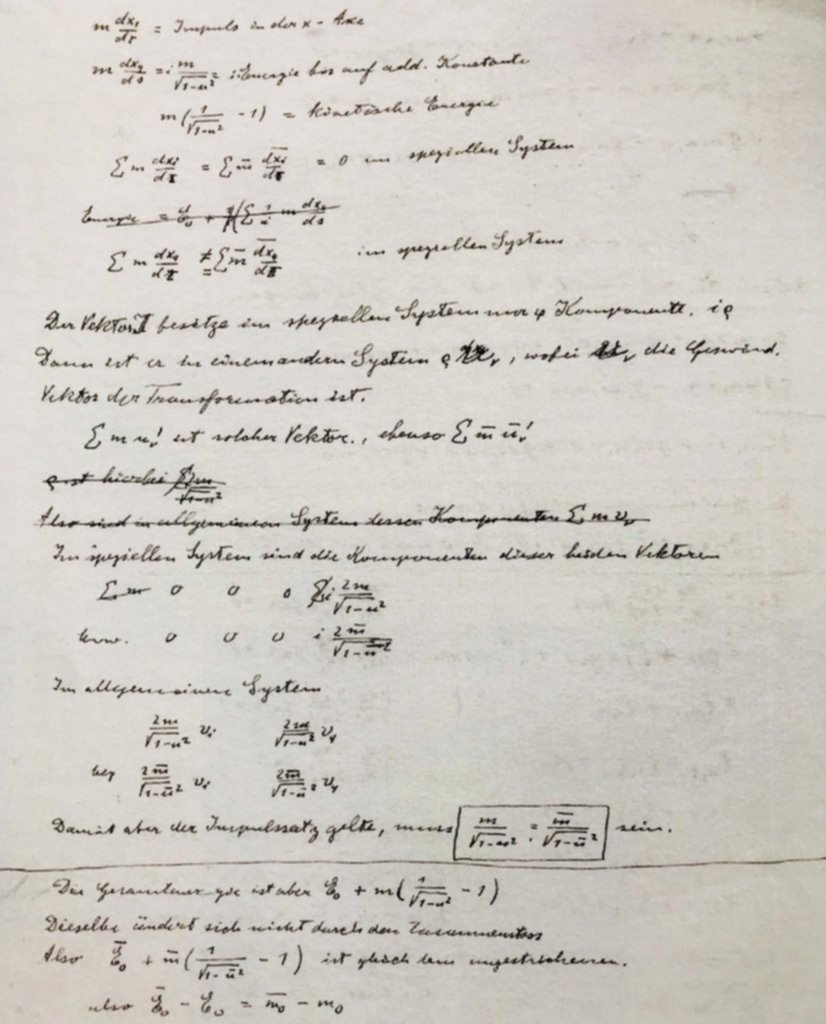 m dx₁/dτ = Impuls in der x-Axe
m dx₄/ds = i m/√(1-u²) = i Energie bis auf add. Konstante
m(1/√(1-u²) - 1) = kinetische Energie
Σ m dxᵢ/dτ = Σ m̄ dx̄ᵢ/dτ = 0 im speziellen System
Energie = E₀ + Σ 1/i m dx₄/ds
Σ m dx₄/dτ ≠ Σ m̄ dx̄₄/dτ im speziellen System
Der Vektor besitze im speziellen System nur 4 Komponente. iϱ
Dann ist er in einem andern System ϱ, wobei die Geschwind.
Vektor der Transformation ist.
Σ m uᵥ' ist solcher Vektor., ebenso Σ m̄ ūᵥ'
ϱ ist hierbei 2m/√(1-u²)
Also sind im allgemeinen System dessen Komponenten Σ m vᵥ
Im speziellen System sind die Komponenten dieser beiden Vektoren
Σ m 0 0 0 i 2m/√(1-u²)
bzw. 0 0 0 i 2m̄/√(1-ū²)
Im allgemeinen System
2m/√(1-u²) vᵢ 2m/√(1-u²) v₄
bez 2m̄/√(1-ū²) vᵢ 2m̄/√(1-ū²) v₄
Damit aber der Impulssatz gelte, muss m/√(1-u²) = m̄/√(1-ū²) sein.
Die Gesamtenergie ist aber E₀ + m(1/√(1-u²) - 1)
Dieselbe ändert sich nicht durch den Zusammenstoss
Also Ē₀ + m̄(1/√(1-ū²) - 1) ist gleich dem ungestrichenen.
also Ē₀ - E₀ = m̄₀ - m₀